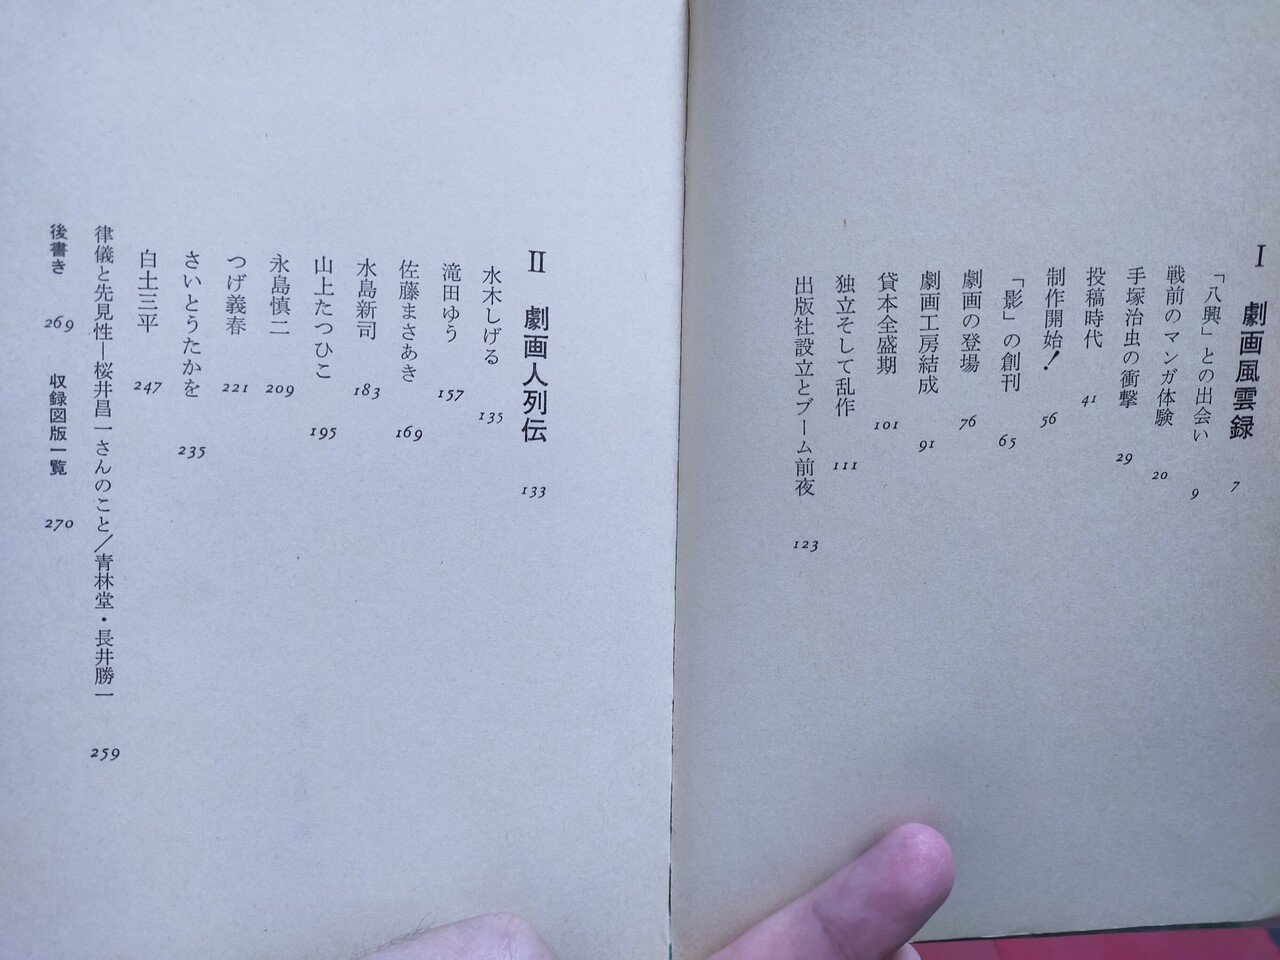 I 劇画風雲録 7
「八興」との出会い 9
戦前のマンガ体験 20
手塚治虫の衝撃 29
投稿時代 41
制作開始！ 56
「影」の創刊 65
劇画の登場 76
劇画工房結成 91
貸本全盛期 101
独立そして乱作 111
出版社設立とブーム前夜 123
II 劇画人列伝 133
水木しげる 135
滝田ゆう 157
佐藤まさあき 169
水島新司 183
山上たつひこ 195
永島慎二 209
つげ義春 221
さいとうたかを 235
白土三平 247
律儀と先見性―桜井昌一さんのこと／青林堂・長井勝一 259
後書き 269 収録図版一覧 270